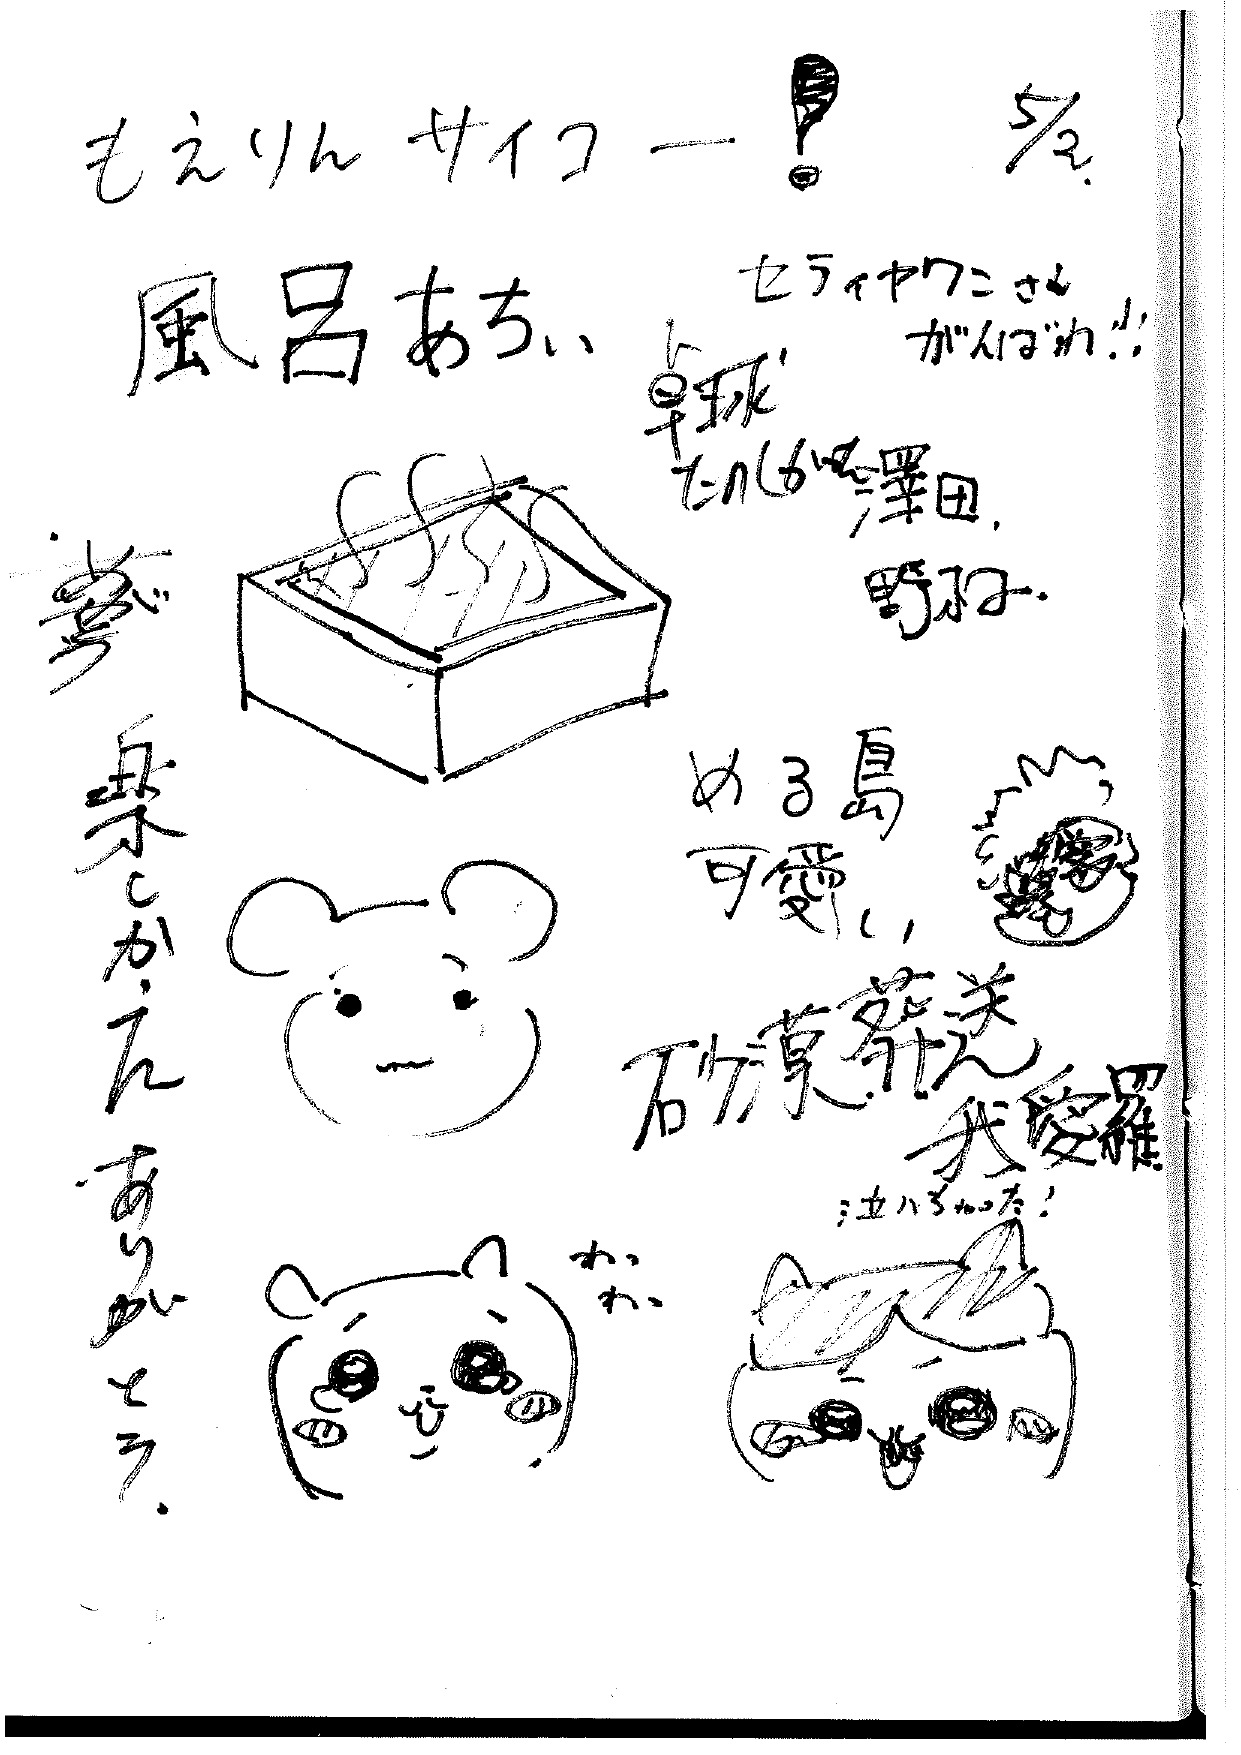 もえりんサイコー!
5/2.
風呂あちぃ
セティヤワニさん
がんばれ!!
卓球
たのしかった
澤田.
める島
可愛い
砂漠葬送
我愛羅
泣いちゃった!
わっ
わっ
楽しかった ありがとう.